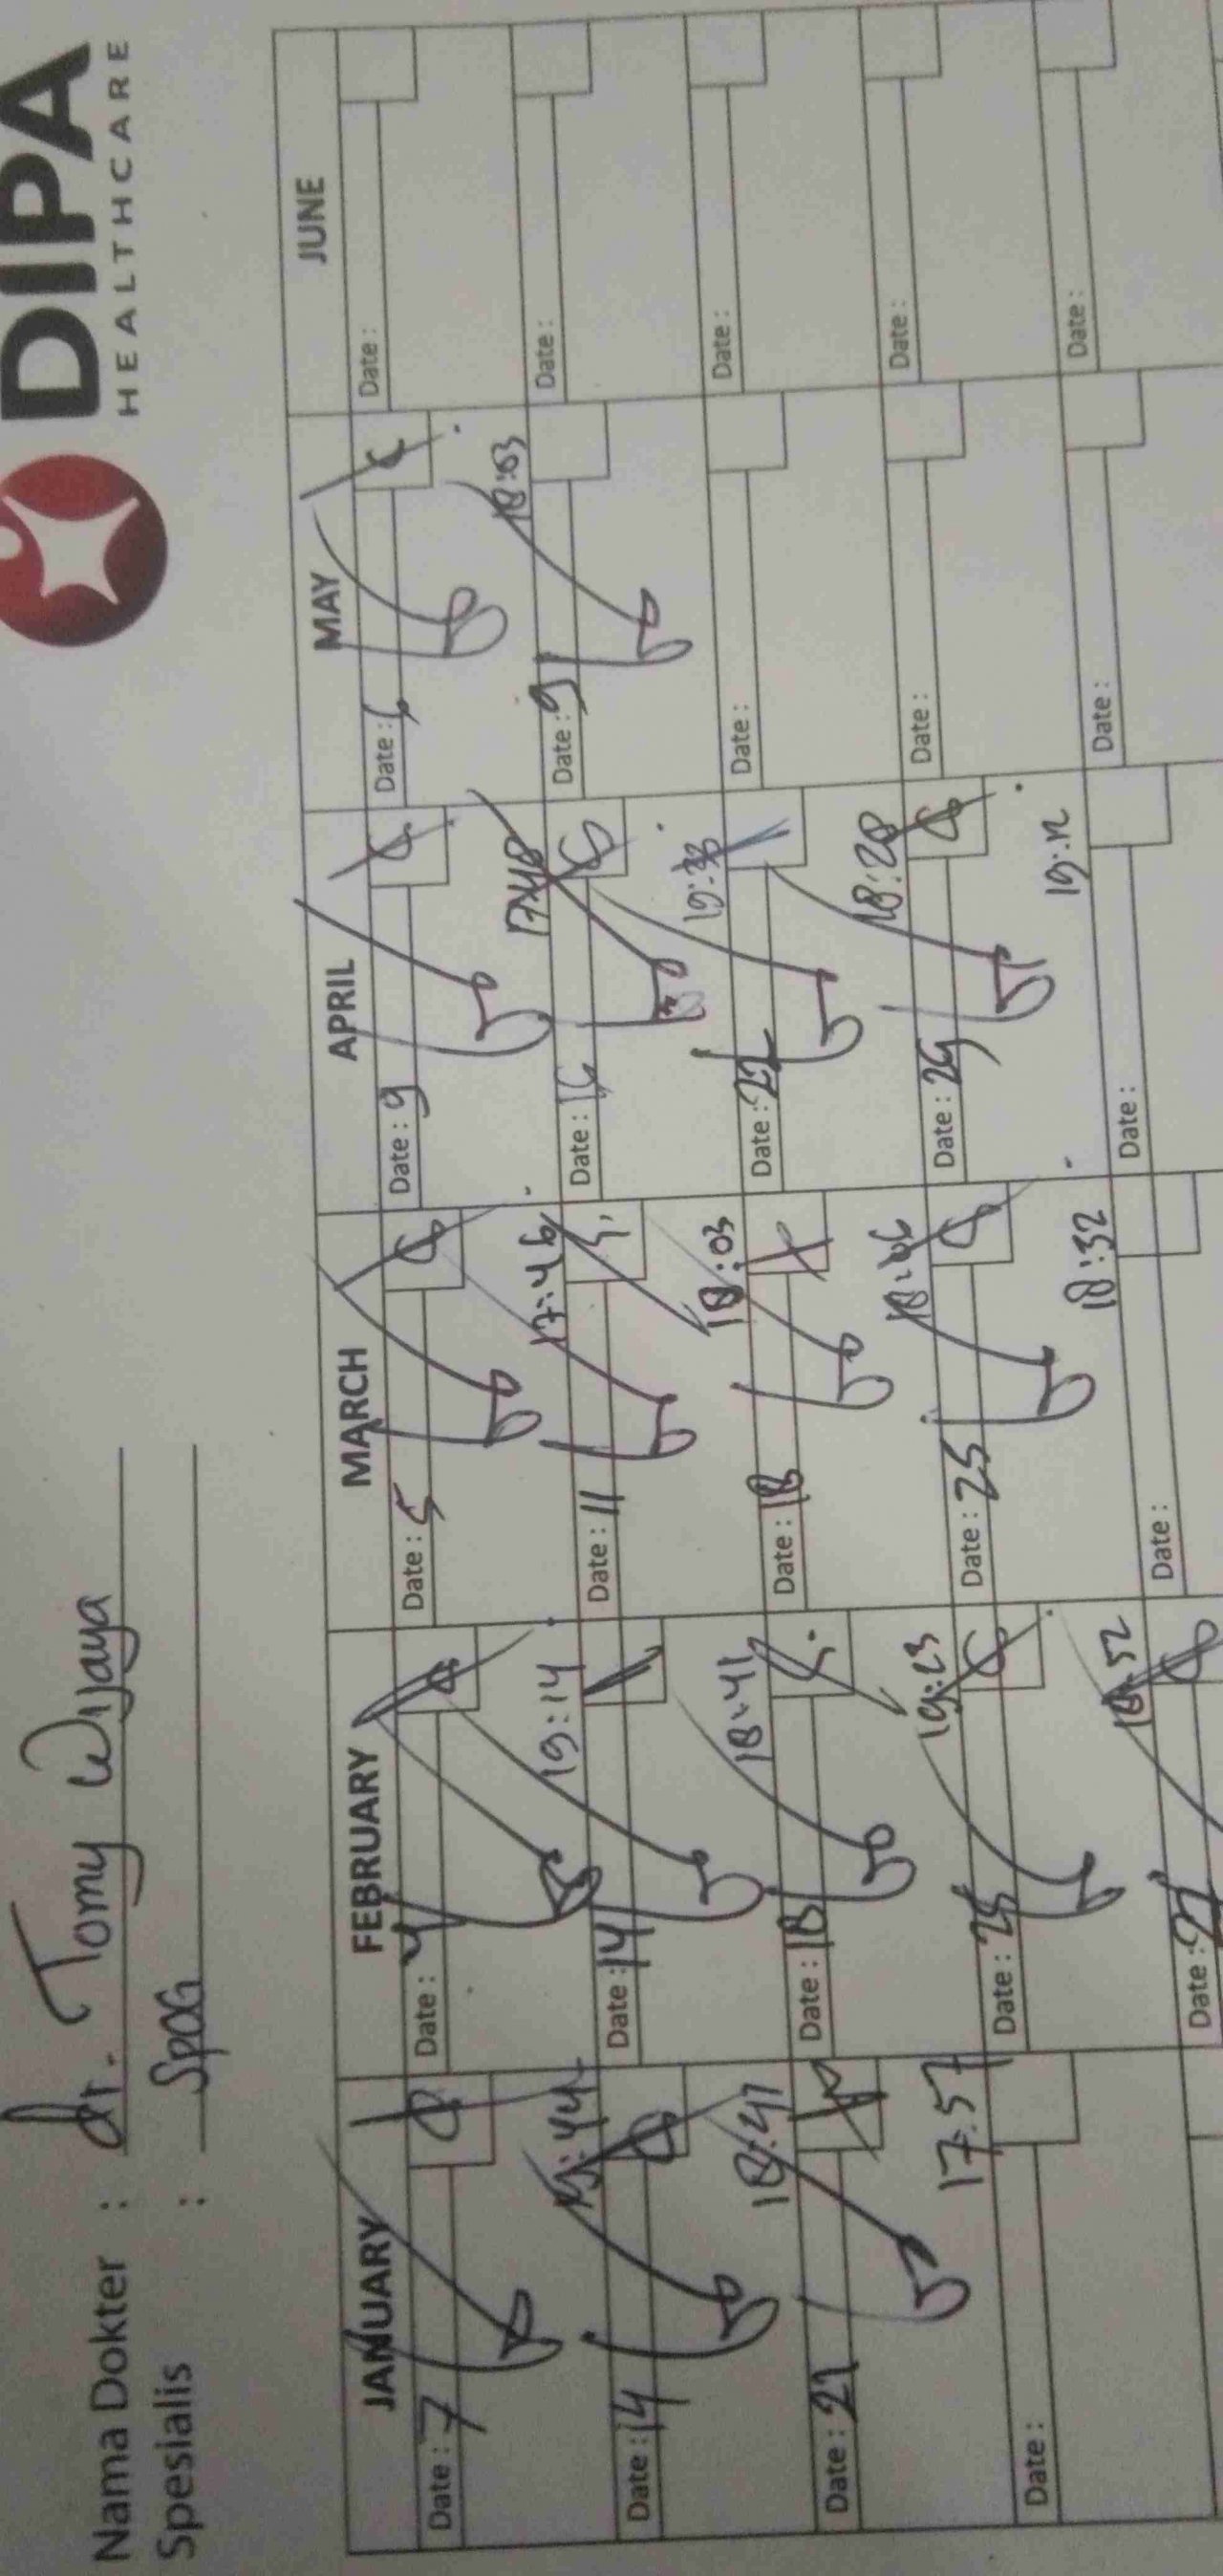 DIPA
HEALTHCARE
Nama Dokter : dr. Tomy Wijaya
Spesialis : SpOG
JANUARY FEBRUARY MARCH APRIL MAY JUNE
Date : 7 Date : 4 Date : 5 Date : 9 Date : 6 Date :
19:14 17:46 17:48 18:03
Date : 14 Date : 14 Date : 11 Date : 16 Date : 9 Date :
18:47 18:41 18:03
Date : 21 Date : 18 Date : 18 Date : 22 Date : Date :
17:57 19:23 18:06 18:28
Date : Date : 25 Date : 25 Date : 29 Date : Date :
18:52 18:32 19:12
Date : Date : Date : Date : Date :